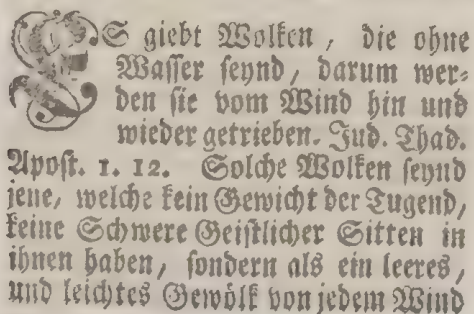 ES giebt Wolken, die ohne
Wasser seynd, darum wer-
den sie vom Wind hin und
wieder getrieben. Jud. Thad.
Apost. 1. 12. Solche Wolken seynd
jene, welche kein Gewicht der Tugend,
keine Schwere Geistlicher Sitten in
ihnen haben, sondern als ein leeres,
und leichtes Gewölk von jedem Wind